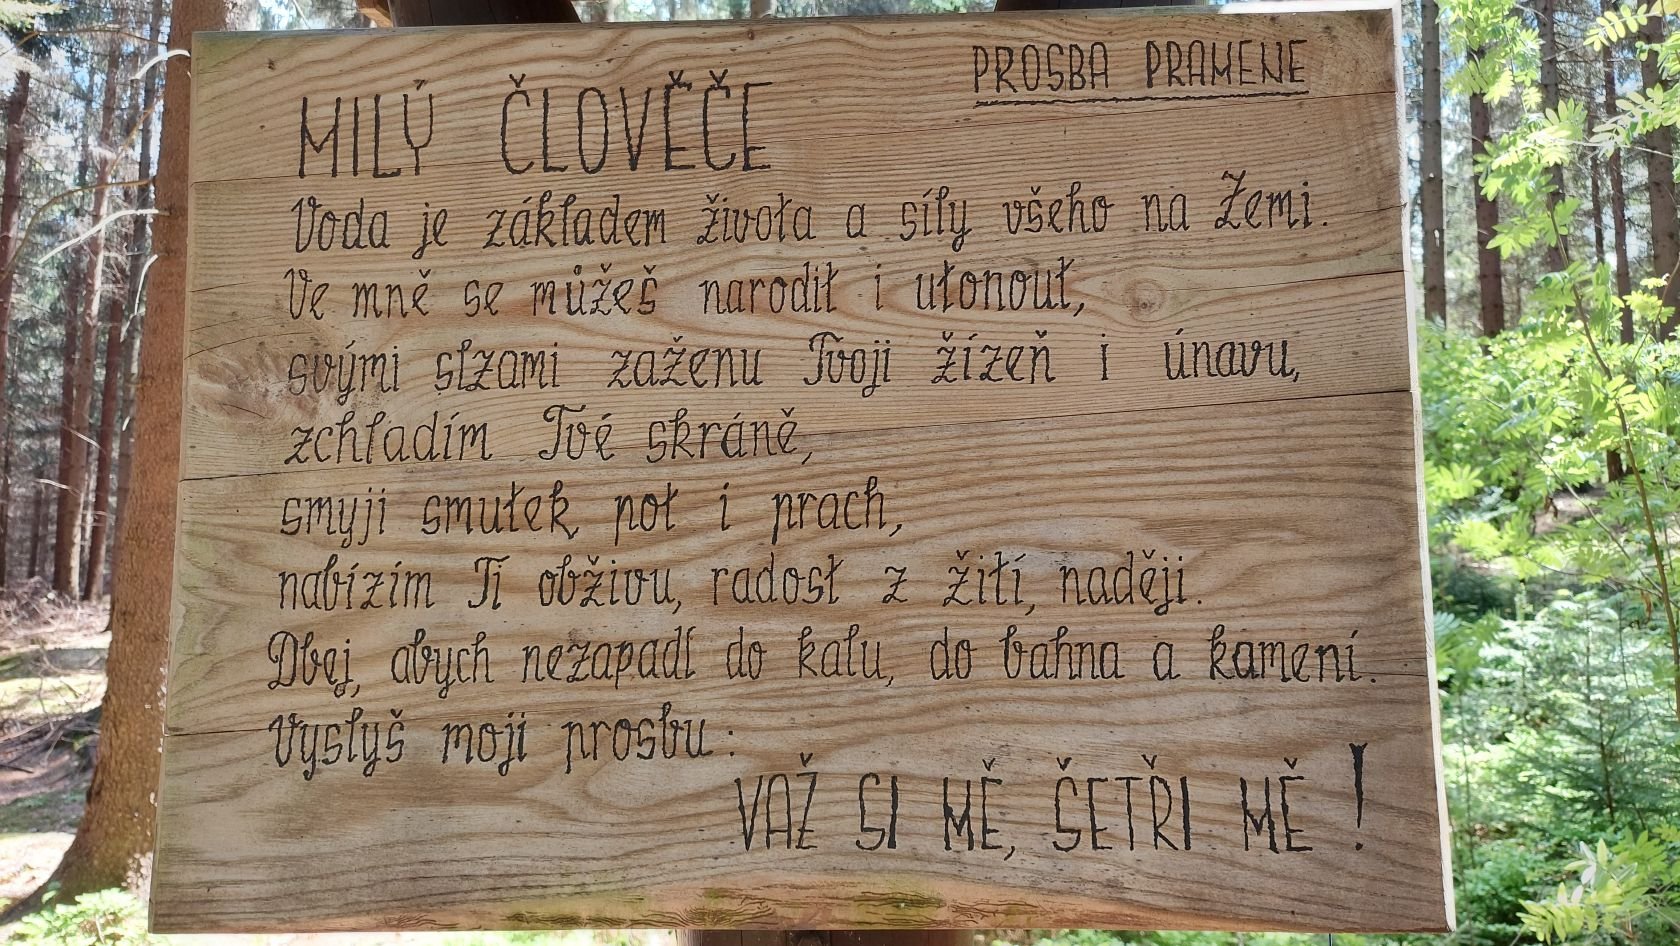 PROSBA PRAMENE
MILÝ ČLOVĚČE
Voda je základem života a síly všeho na Zemi.
Ve mně se můžeš narodit i utonout,
svými slzami zaženu Tvoji žízeň i únavu,
zchladím Tvé skráně,
smyji smutek, pot i prach,
nabízím Ti obživu, radost z žití, naději.
Dbej, abych nezapadl do kalu, do bahna a kamení.
Vyslyš moji prosbu:
VAŽ SI MĚ, ŠETŘI MĚ!